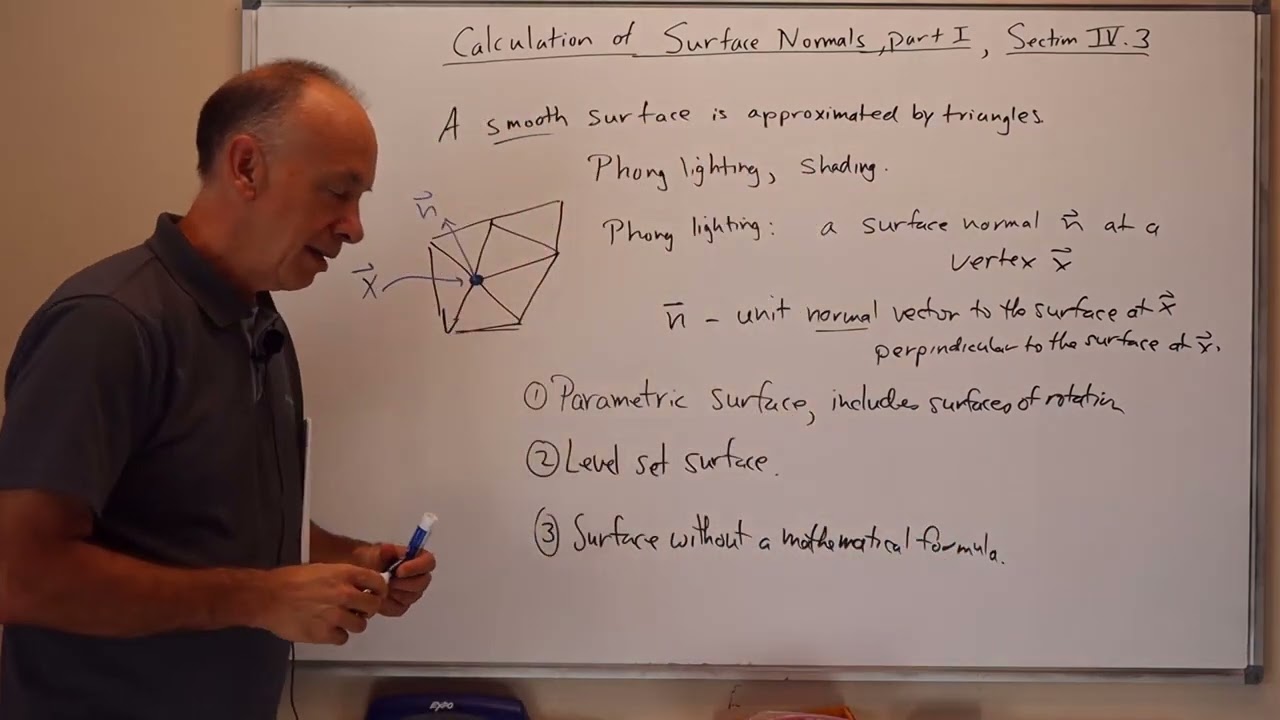 Calculation of Surface Normals, part I, Section IV.3
A smooth surface is approximated by triangles.
Phong lighting, shading.
n⃗
x⃗
Phong lighting: a surface normal n⃗ at a
vertex x⃗
n⃗ - unit normal vector to the surface at x⃗
perpindicular to the surface at x⃗.
① Parametric surface, includes surfaces of rotation
② Level set surface.
③ Surface without a mathematical formula.
EXPO